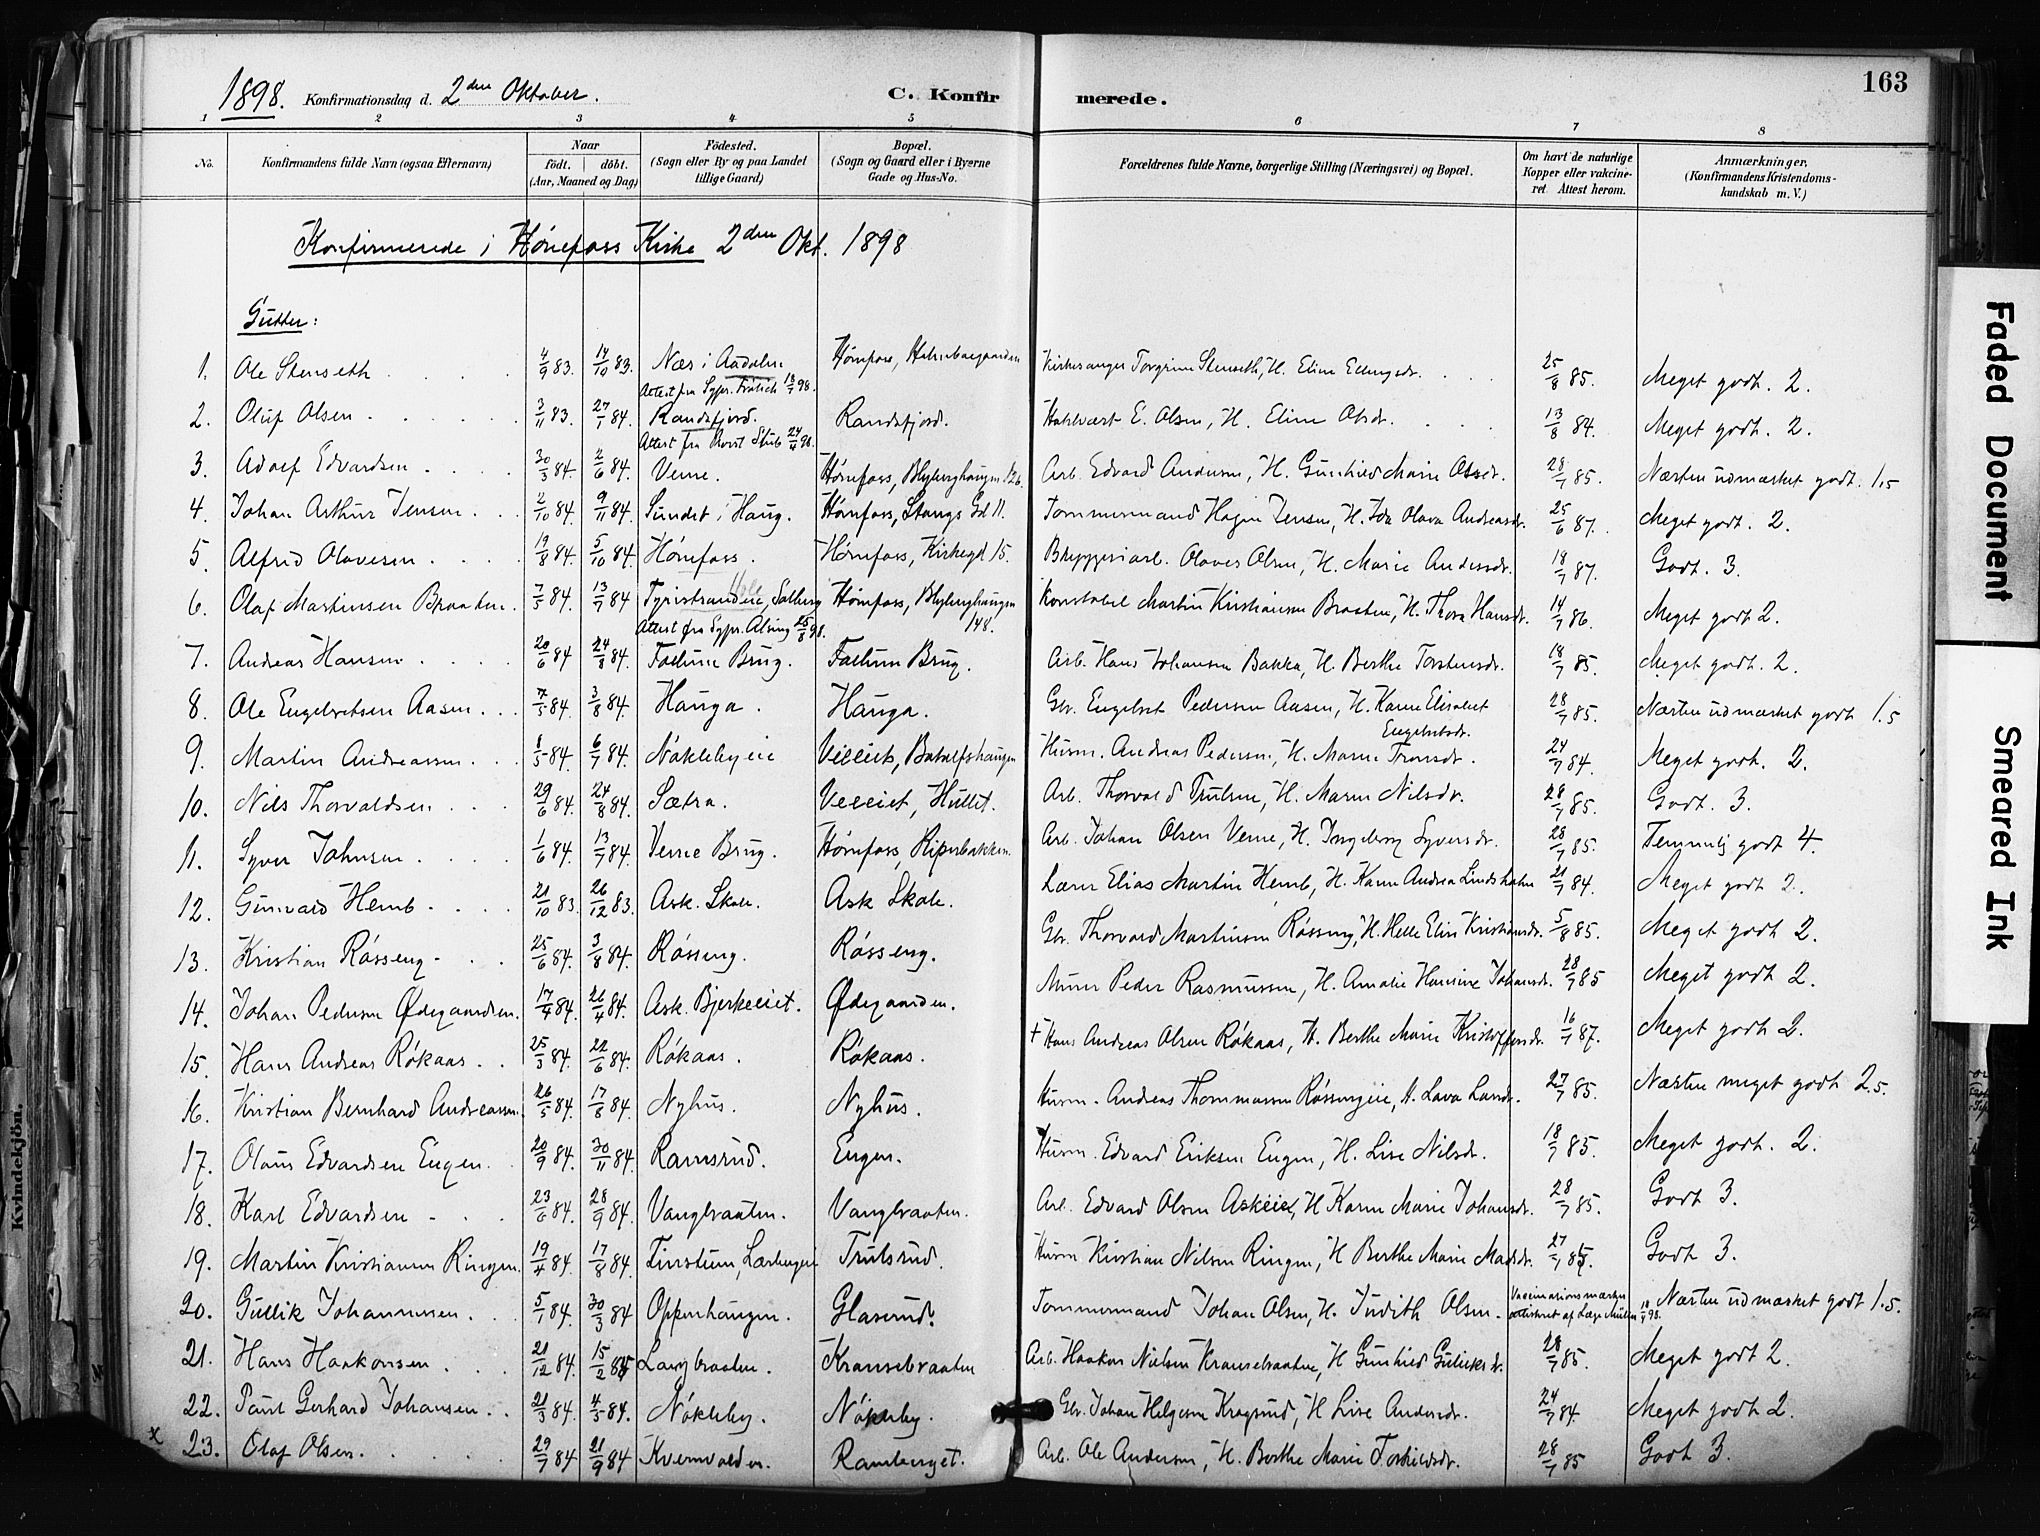 163
1898. Konfirmationsdag d. 2den Oktober. C. Konfirmerede.
1 2 3 4 5 6 7 8
No. Konfirmandens fulde Navn (ogsaa Efternavn) Naar födt. döbt. (Aar, Maaned og Dag) Födested. (Sogn eller By og paa Landet tillige Gaard) Bopæl. (Sogn og Gaard eller i Byerne Gade og Hus-No. Forældrenes fulde Navne, borgerlige Stilling (Næringsvei) og Bopæl. Om havt de naturlige Kopper eller vakcineret. Attest herom. Anmærkninger. (Konfirmandens Kristendomskundskab m. V.)
Konfirmerede i Hønefoss Kirke 2den Okt. 1898
Gutter:
1. Ole Stenseth 4/9 83. 14/10 83. Næs i Aadalen Hønefoss, Kirkesanger Torgrim Stenseth, H. Eline Ellingsdr. 25/8 85. Meget godt. 2.
Attest fra Sgpr. Frölich 18/7 98.
2. Oluf Olsen 3/11 83. 27/1 84. Randsfjord. Randsfjord. E. Olsen, H. Eline Olsdr. 13/8 84. Meget godt. 2.
Attest fra Provst Stub 24/4 98.
3. Adolf Edvardsen 30/3 84. 2/6 84. Veme. Hønefoss, Blyberghaugen 126. Arb. Edvard Andersen, H. Gunhild Marie Olsdr. 28/7 85. Næsten udmærket godt. 1.5
4. Johan Arthur Jensen 2/10 84. 9/11 84. Sundet i Haug. Hønefoss, Stangs Gd 11. Tømmermand Hagen Jensen, H. Ida Olava Andreasdr. 25/6 87. Meget godt. 2.
5. Alfred Olavesen 19/8 84. 5/10 84. Hønefoss. Hønefoss, Kirkegd 15. Bryggeriarb. Olaves Olsen, H. Marie Andersdr. 18/7 87. Godt. 3.
6. Olaf Martinsen Braaten. 7/5 84. 13/7 84 Tyristranden, Solberg Hønefoss, Blyberghaugen 148. Konstabel Martin Kristiansen Braaten, H. Thora Hansdr. 14/7 86. Meget godt 2.
Hole
Attest fra Sgpr. Alsing 25/8 98.
7. Andreas Hansen 20/6 84 24/8 84. Follum Brug. Follum Brug. Arb. Hans Johansen Bakka, H. Berthe Torstensdr. 18/7 85. Meget godt. 2.
8. Ole Engebretsen Aasen 7/5 84. 3/8 84. Hauga. Hauga. Gbr. Engebret Pedersen Aasen, H. Karen Elisabet Engebretsdr. 28/7 85. Næsten udmærket godt 1.5
9. Martin Andreassen 1/5 84. 6/7 84. Nökleby eie Veleiet, Husm. Andreas Pedersen, H. Maren Tronsdr. 24/7 84. Meget godt. 2.
10. Nils Thorvaldsen 29/6 84. 24/8 84. Sætra. Veleiet, Hullet. Arb. Thorvald Trulsen, H. Maren Nilsdr. 28/7 85. Godt. 3.
11. Syver Johnsen 1/6 84. 13/7 84. Veme Brug. Hønefoss, Ripsbakken. Arb. Johan Olsen Veme, H. Ingeborg Syversdr. 28/7 85. Temmelig godt 4.
12. Gunvald Hemb 21/10 83. 26/12 83. Ask. Skole. Ask Skole. Lærer Elias Martin Hemb, H. Karen Andrea Lindsholm 21/7 84. Meget godt 2.
13. Kristian Røsseng 25/6 84. 3/8 84. Røsseng. Røsseng. Gbr. Thorvald Martinsen Røsseng, H. Helle Elin Kristiansdr. 5/8 85. Meget godt 2.
14. Johan Pedersen Ødegaarden. 17/4 84. 26/4 84. Ask. Bjerkeeiet. Ødegaarden. Murer Peder Rasmussen, H. Amalie Hansine Johansdr. 28/7 85 Meget godt 2.
15. Hans Andreas Røkaas 25/3 84. 22/6 84. Røkaas. Røkaas. † Hans Andreas Olsen Røkaas, H. Berthe Marie Kristoffersdr. 16/7 87. Meget godt 2.
16. Kristian Bernhard Andreassen. 26/5 84. 17/8 84. Nyhus. Nyhus. Husm. Andreas Thommasen Røssengeie, H. Lava Larsdr. 27/7 85. Næsten meget godt 2.5.
17. Olaus Edvardsen Eugen 20/9 84. 30/11 84. Ramsrud. Eugen. Husm. Edvard Eriksen Eugen, H. Lise Nilsdr. 18/7 85. Meget godt. 2.
18. Karl Edvardsen 23/6 84. 28/9 84. Vangbraaten. Vangbraaten. Arb. Edvard Olsen Askeiet, H Karen Marie Johansdr. 28/7 85. Godt 3.
19. Martin Kristiansen Ringen. 19/4 84. 17/8 84. Trulsrud. Husm Kristian Nilsen Ringen, H Berthe Marie Madsdr. 27/7 85. Godt 3.
20. Gullik Johannessen 5/1 84. 30/3 84 Oppenhaugen. Glaserud. Tømmermand Johan Olsen, H. Judith Olsen. Vaccinationsmærker attesteret af Læge 18/7 98. Næsten udmærket godt 1.5.
21. Hans Haakonsen 21/12 84. 15/2 85 Langbraaten. Kranselbraaten Arb. Haakon Nielsen Kranselbraaten, H Gunhild Gulliksdr. 28/7 85. Meget godt 2.
22. Paul Gerhard Johansen 21/3 84. 4/5 84. Nökleby. Nökleby. Gbr. Johan Helgesen Kragsrud, H Lise Andersdr. 24/7 84. Meget godt 2.
x 23. Olaf Olsen 29/7 84 21/9 84 Kvernvolden. Ramberget. Arb. Ole Andersen, H. Berthe Marie Torkildsdr. 28/7 85 Godt 3.
Kvindekjön.
Faded Document
Smeared Ink